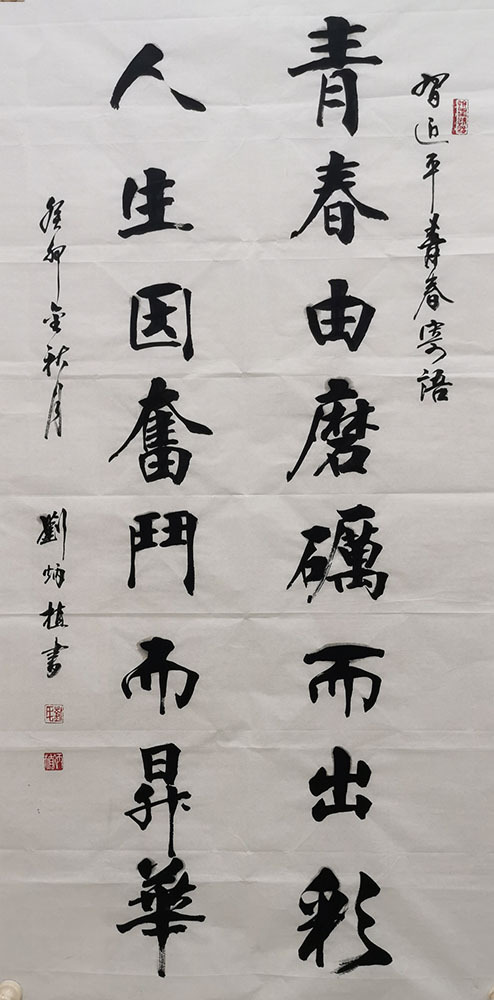 習近平青春寄語
青春由磨礪而出彩
人生因奮鬥而昇華
癸卯金秋月
劉炳植書